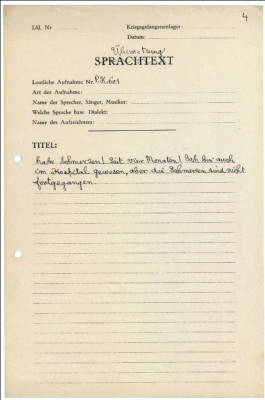 4
Lfd. Nr.
Kriegsgefangenenlager:
Datum:
Übersetzung
SPRACHTEXT
Lautliche Aufnahme Nr. P.K. 601
Art der Aufnahme:
Name der Sprecher, Sänger, Musiker:
Welche Sprache bzw. Dialekt:
Name des Aufzeichners:
TITEL:
habe Schmerzen! Seit vier Monaten! Ich bin auch
im Hospital gewesen, aber die Schmerzen sind nicht
fortgegangen.